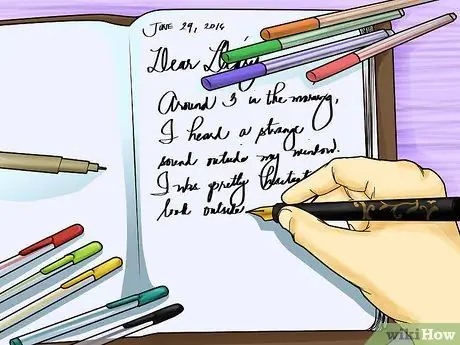 June 29, 2014
Dear Diary
Around 3 in the morning,
I heard a strange
sound outside my window.
I was pretty
look outside
wikiHow